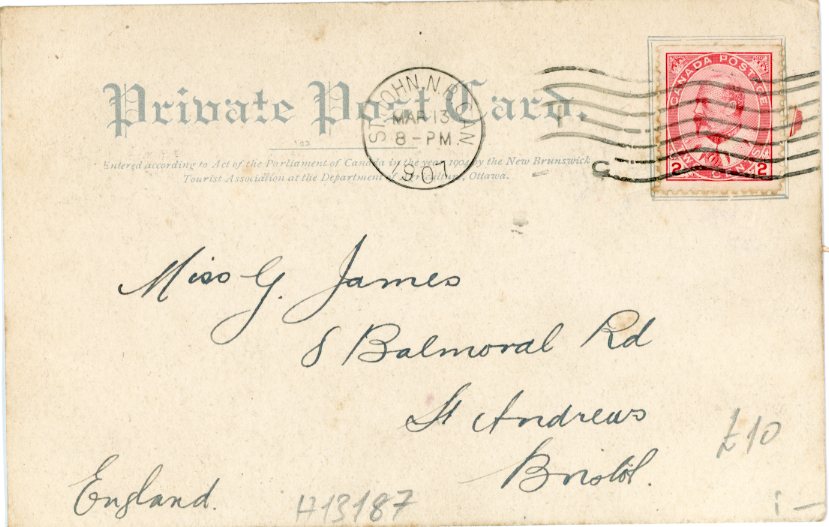 Private Post Card.
ST. JOHN, N.B. CAN
MAR 13
8-PM
1907
CANADA POSTAGE
2 TWO CENTS 2
Entered according to Act of the Parliament of Canada in the year 1904 by the New Brunswick
Tourist Association at the Department of Agriculture, Ottawa.
Miss G. James
8 Balmoral Rd
St Andrews
Bristol.
England.
£10
H13187